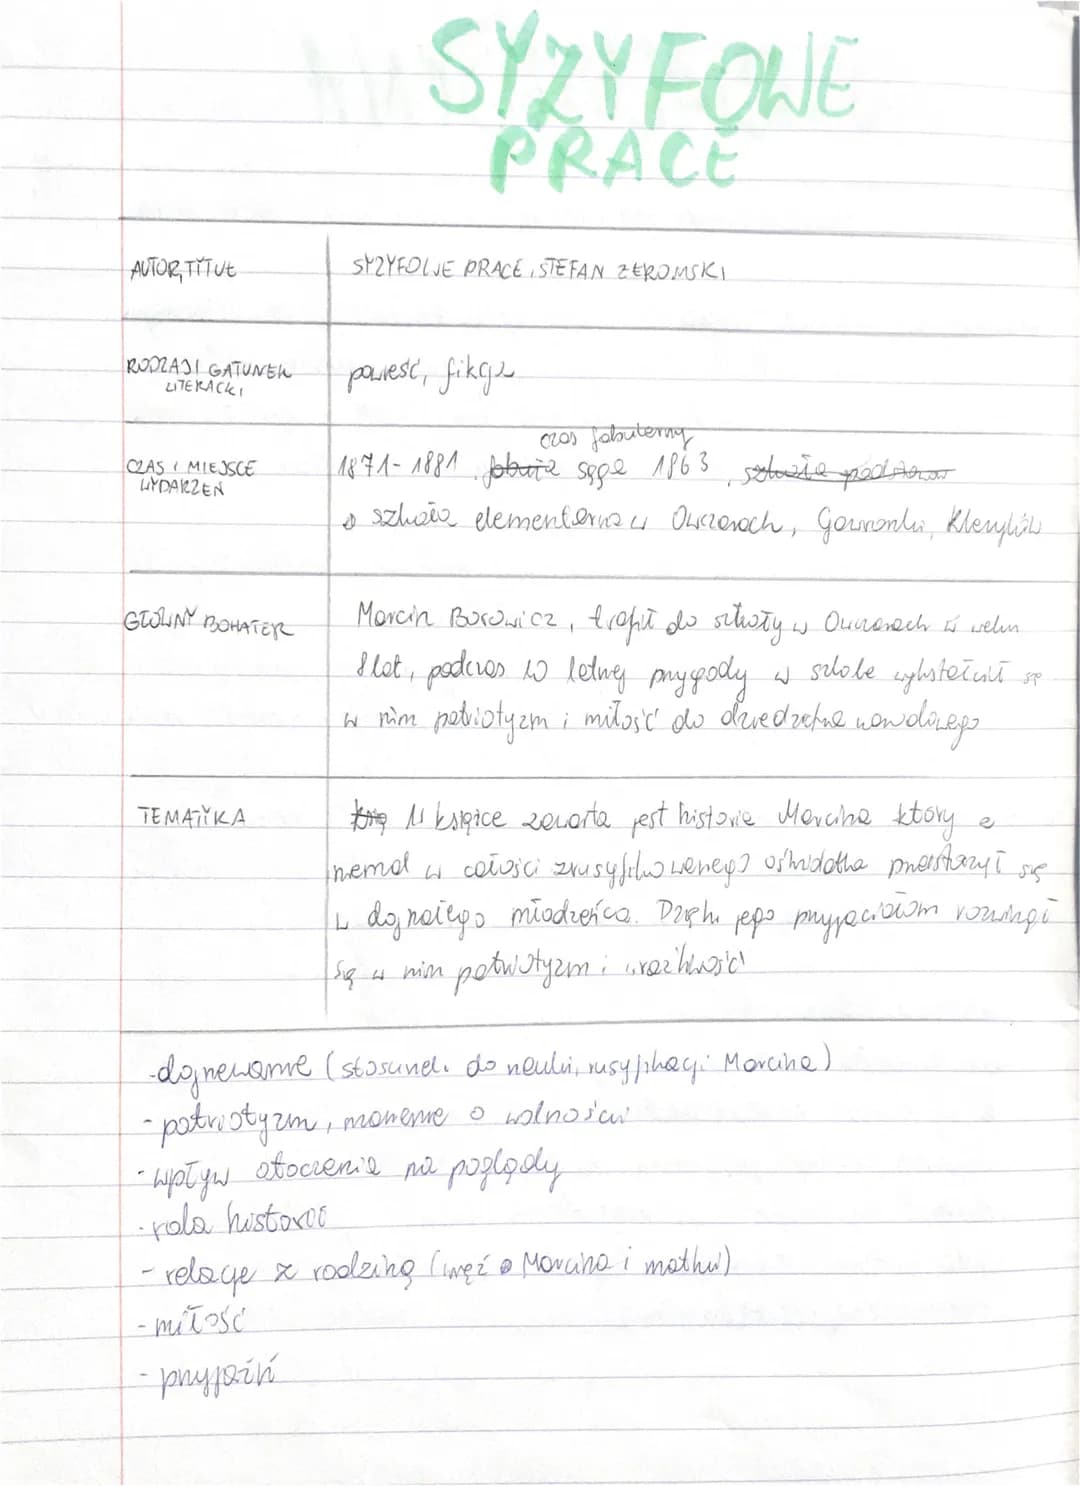 SYZYFOWE
PRACE
AUTOR, TYTUŁ
SYZYFOWE PRACE, STEFAN ŻEROMSKI
RODZAJ I GATUNEK
LITERACKI
powieść, fikcja
czas fabularny
CZAS I MIEJSCE
WYDARZEŃ
1871-1881, fabuła sięga 1863, szkoła podstaw
szkoła elementarna w Owczarach, Gawronki, Kleryków
GŁÓWNY BOHATER
Marcin Borowicz, trafił do szkoły w Owczarach w wieku
8 lat, podczas 10 letniej przygody w szkole wykształcił się
w nim patriotyzm i miłość do dziedzictwa narodowego
TEMATYKA
W książce zawarta jest historia Marcina który z
niemal w całości zrusyfikowanego ośmiolatka przekształcił się
w dojrzałego młodzieńca. Dzięki jego przyjaciołom rozwinął
się w nim patriotyzm i wrażliwość
-dojrzewanie (stosunek do nauki, rusyfikacji Marcina)
- patriotyzm, marzenie o wolności
- wpływ otoczenia na poglądy
- rola historii
- relacje z rodziną (więź Marcina i matki)
- miłość
- przyjaźń